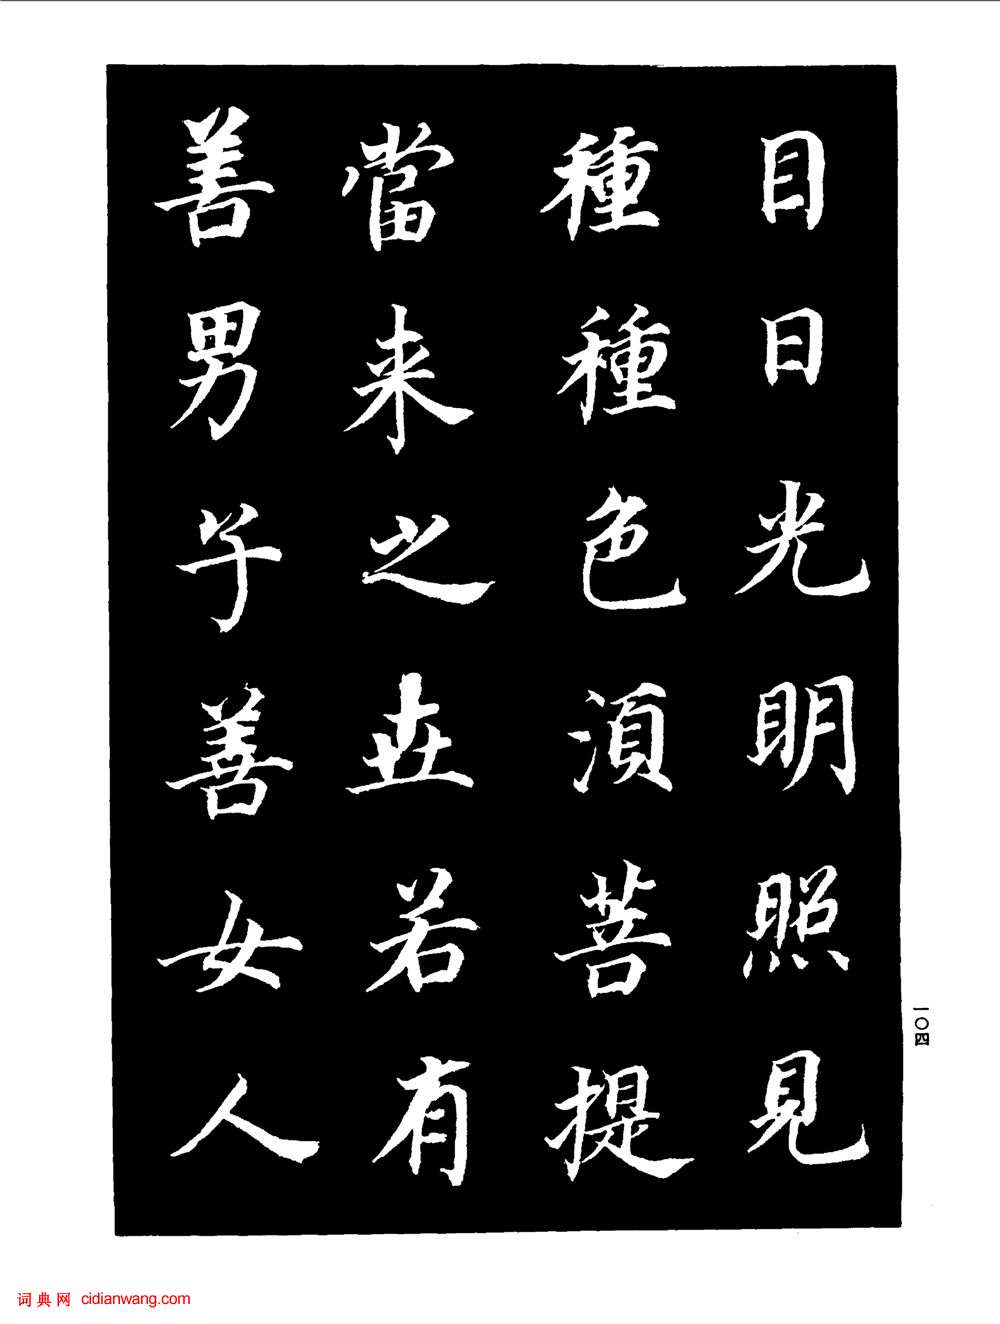 目日光明照見
種種色湏菩提
當来之世若有
善男子善女人
一〇四
词典网 cidianwang.com